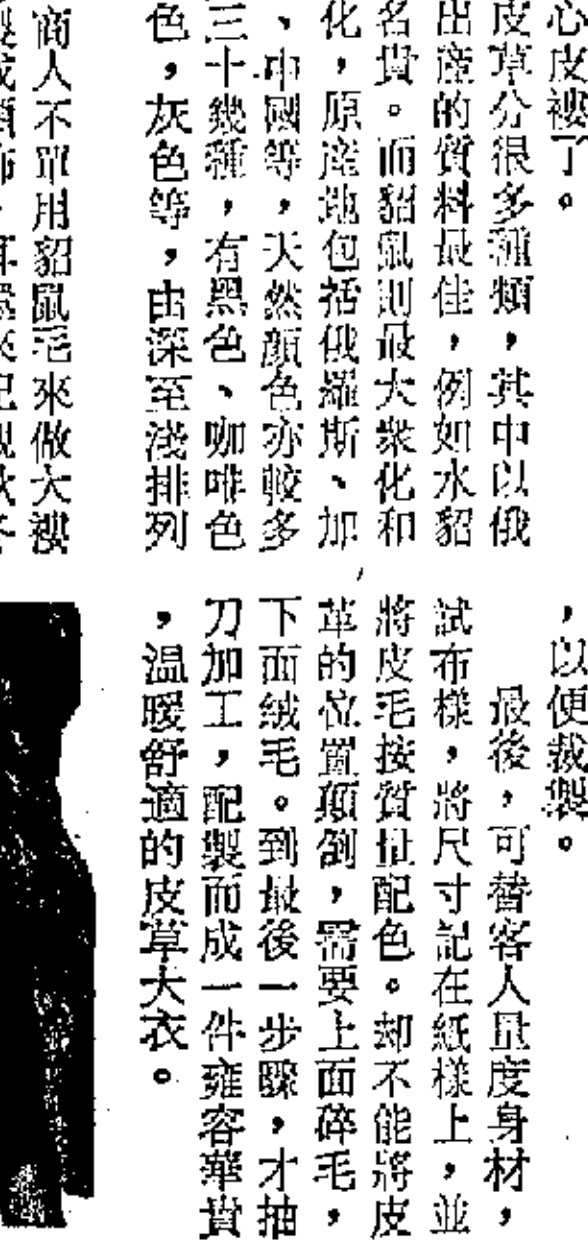 心皮褸了。
皮草分很多種類，其中以俄
出產的質料最佳，例如水貂
名貴。而貂鼠則最大衆化和
化，原產地包括俄羅斯、加
、中國等，天然顏色亦較多
三十幾種，有黑色、咖啡色
色，灰色等，由深至淺排列
商人不單用貂鼠毛來做大褸
，以便裁製。
最後，可替客人量度身材，
試布樣，將尺寸記在紙樣上，並
將皮毛按質量配色。却不能將皮
革的位置顛倒，需要上面碎毛，
下面絨毛。到最後一步驟，才抽
刀加工，配製而成一件雍容華貴
，溫暖舒適的皮草大衣。